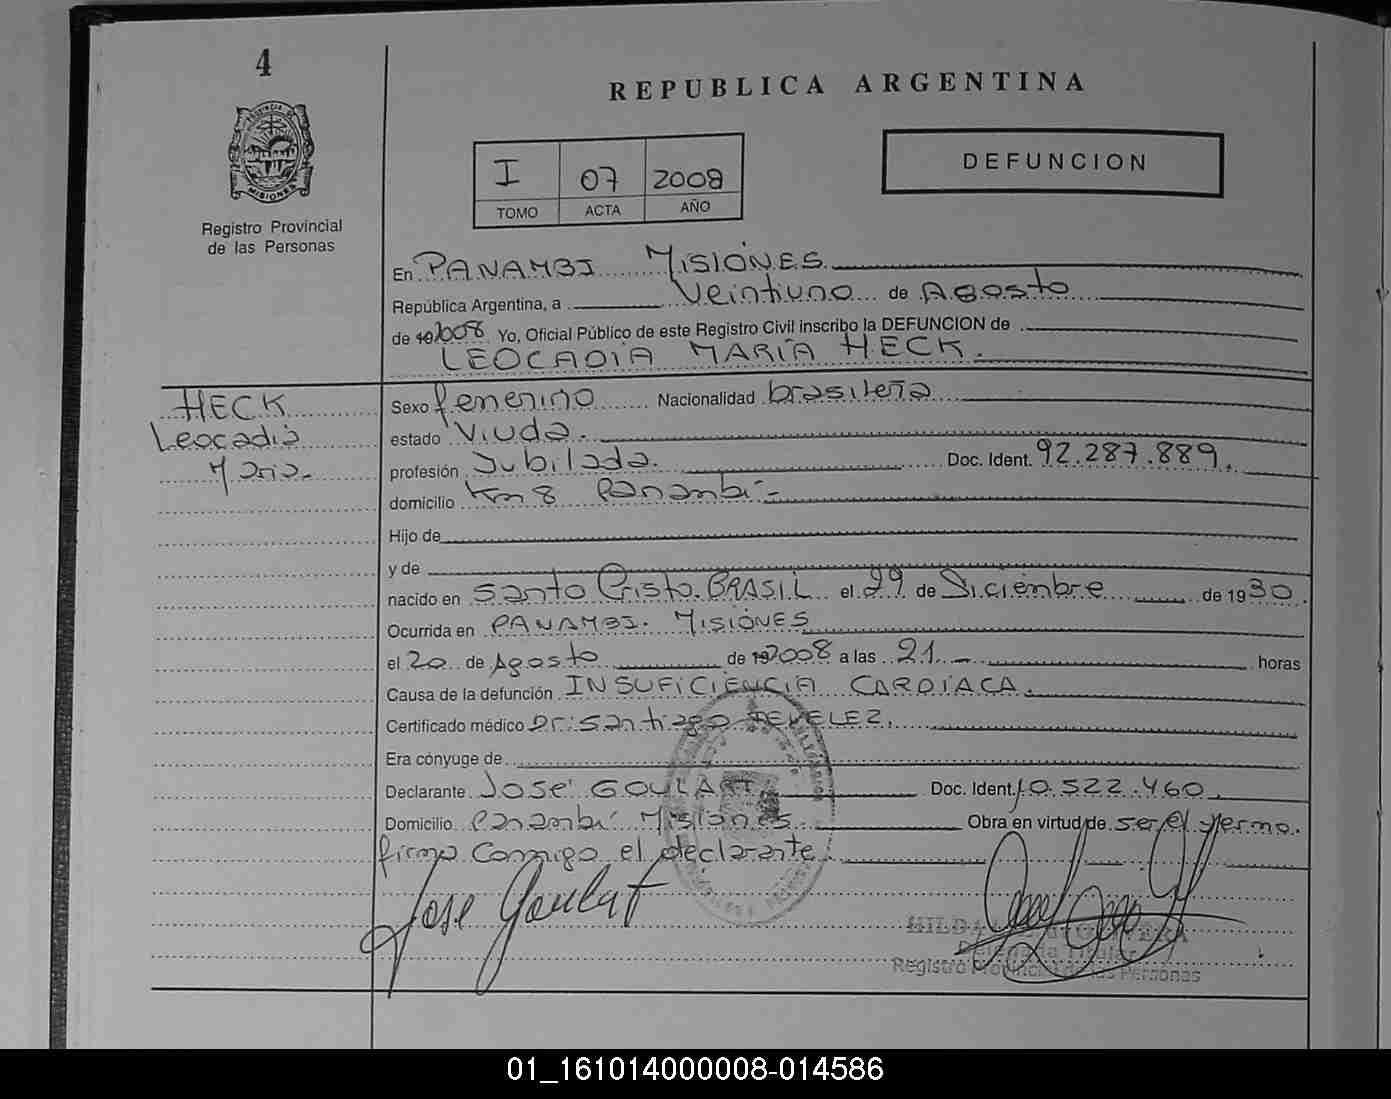 4
PROVINCIA DE
MISIONES
Registro Provincial
de las Personas
REPUBLICA ARGENTINA
I 07 2008
TOMO ACTA AÑO
DEFUNCION
En PANAMBI MISIONES
República Argentina, a Veintiuno de Agosto
de 2008 Yo, Oficial Público de este Registro Civil inscribo la DEFUNCION de
LEOCADIA MARÍA HECK.
HECK
Leocadia
Maria.
Sexo femenino Nacionalidad brasileña
estado Viuda.
profesión Jubilada. Doc. Ident. 92.287.889.
domicilio Km 8 Panambí -
Hijo de
y de
nacido en Santo Cristo. BRASIL el 29 de Diciembre de 1930.
Ocurrida en PANAMBI. MISIONES
el 20 de Agosto de 2008 a las 21 - horas
Causa de la defunción INSUFICIENCIA CARDÍACA.
Certificado médico Dr: Santiago
Era cónyuge de
Declarante JOSÉ GOULART Doc. Ident. 10.522.460.
Domicilio Panambí Misiones Obra en virtud de ser el yerno.
firma conmigo el declarante
Jose Goulart
HILDA
Delegada Titular
Registro Provincial de las Personas
01_161014000008-014586